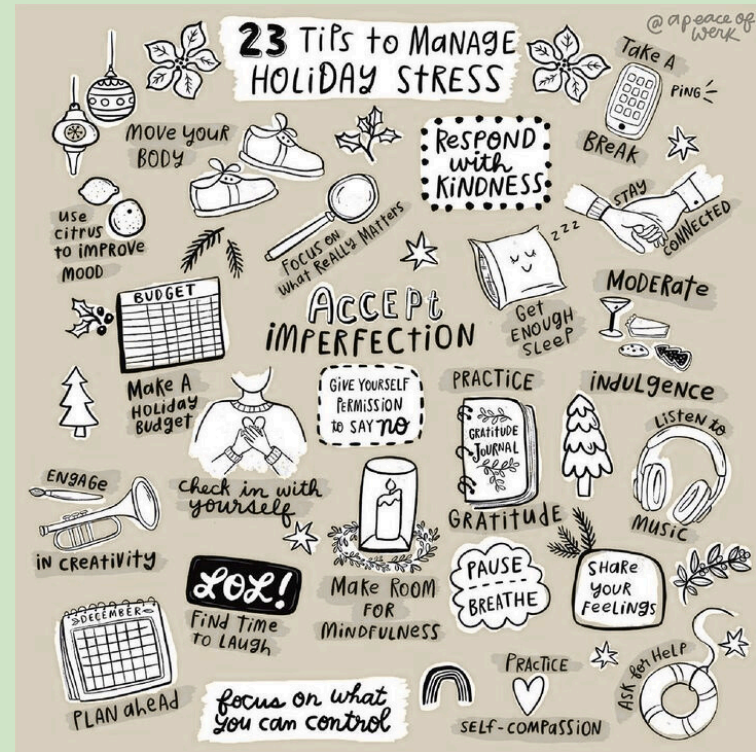 23 TIPS to MANAGE
HOLIDAY STRESS
@apeace of
werk
TAKE A
PING
BREAK
MOVE YOUR
BODY
RESPOND
with
KINDNESS
STAY
CONNECTED
USE
citrus
to IMPROVE
MOOD
FOCUS ON
what REALLY MATTERS
zzz
Get
ENOUGH
SLEEP
MODERATE
INDULGENCE
BUDGET
MAKE A
HOLIDAY
BUDGET
ACCEPT
IMPERFECTION
GIVE YOURSELF
PERMISSION
to SAY no
PRACTICE
GRATITUDE
JOURNAL
GRATITUDE
LISTEN to
MUSIC
check in with
yourself
ENGAGE
IN CREATIVITY
LOL!
FIND TIME
TO LAUGH
MAKE ROOM
FOR
MINDFULNESS
PAUSE
BREATHE
SHARE
YOUR
FEELINGS
DECEMBER
PLAN ahead
focus on what
you can control
PRACTICE
SELF-COMPASSION
ASK for HELP